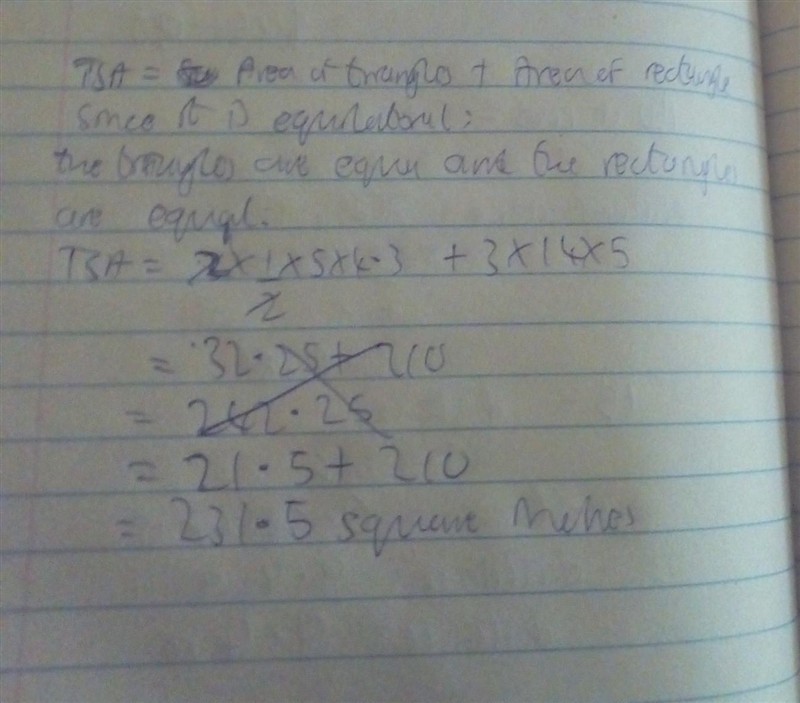 TSA = Area of triangles + Area of rectangle
Since it is equilateral;
the triangles are equal and the rectangles
are equal.
TSA = 2 × 1 × 5 × 4.3 + 3 × 14 × 5
2
= 32.25 + 210
= 242.25
= 21.5 + 210
= 231.5 square inches